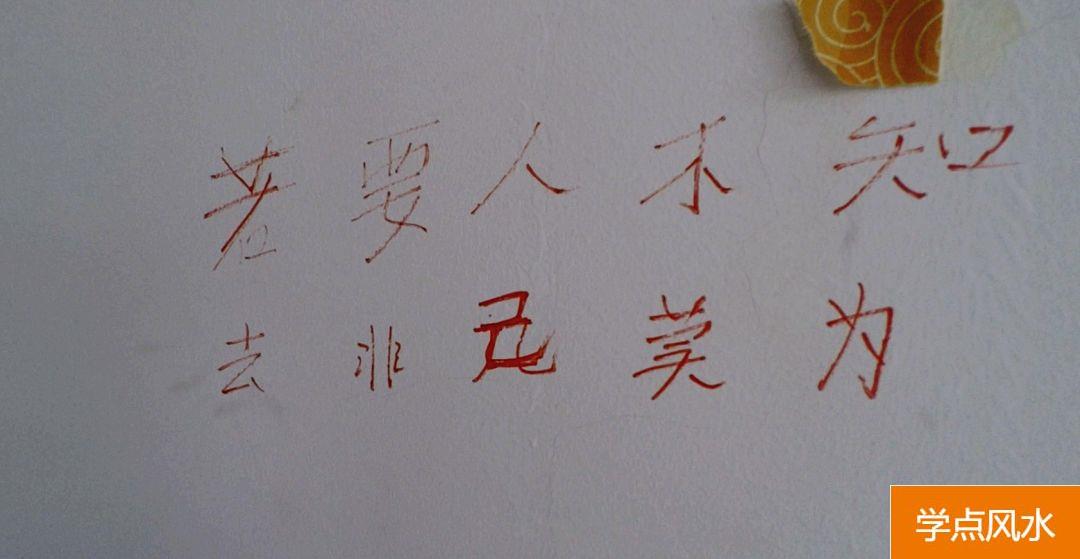 若要人不知
去非己莫为
学点风水